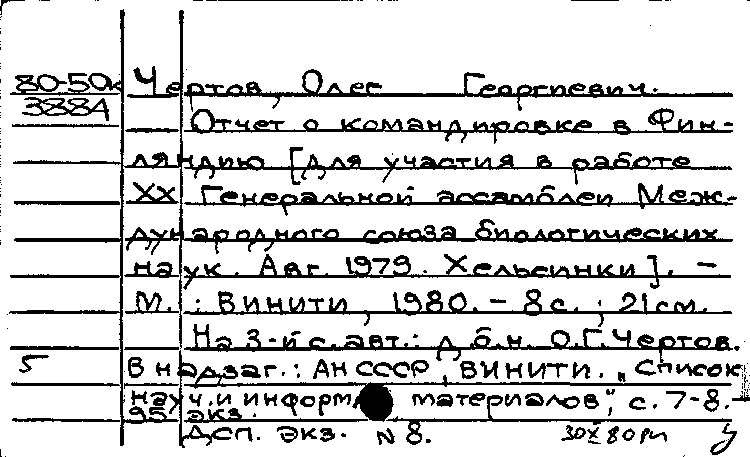 80-50к Чертов, Олег Георгиевич.
3884 Отчет о командировке в Фин-
ляндию [для участия в работе
XX Генеральной ассамблеи Меж-
дународного союза биологических
наук. Авг. 1979. Хельсинки]. –
М.: ВИНИТИ, 1980. – 8 с.; 21 см.
На 3-й с. авт.: д.б.н. О.Г. Чертов.
5 В надзаг.: АН СССР, ВИНИТИ. „Список
науч. и информ. материалов", с. 7-8.
95 экз.
ДСП. Экз. N 8.